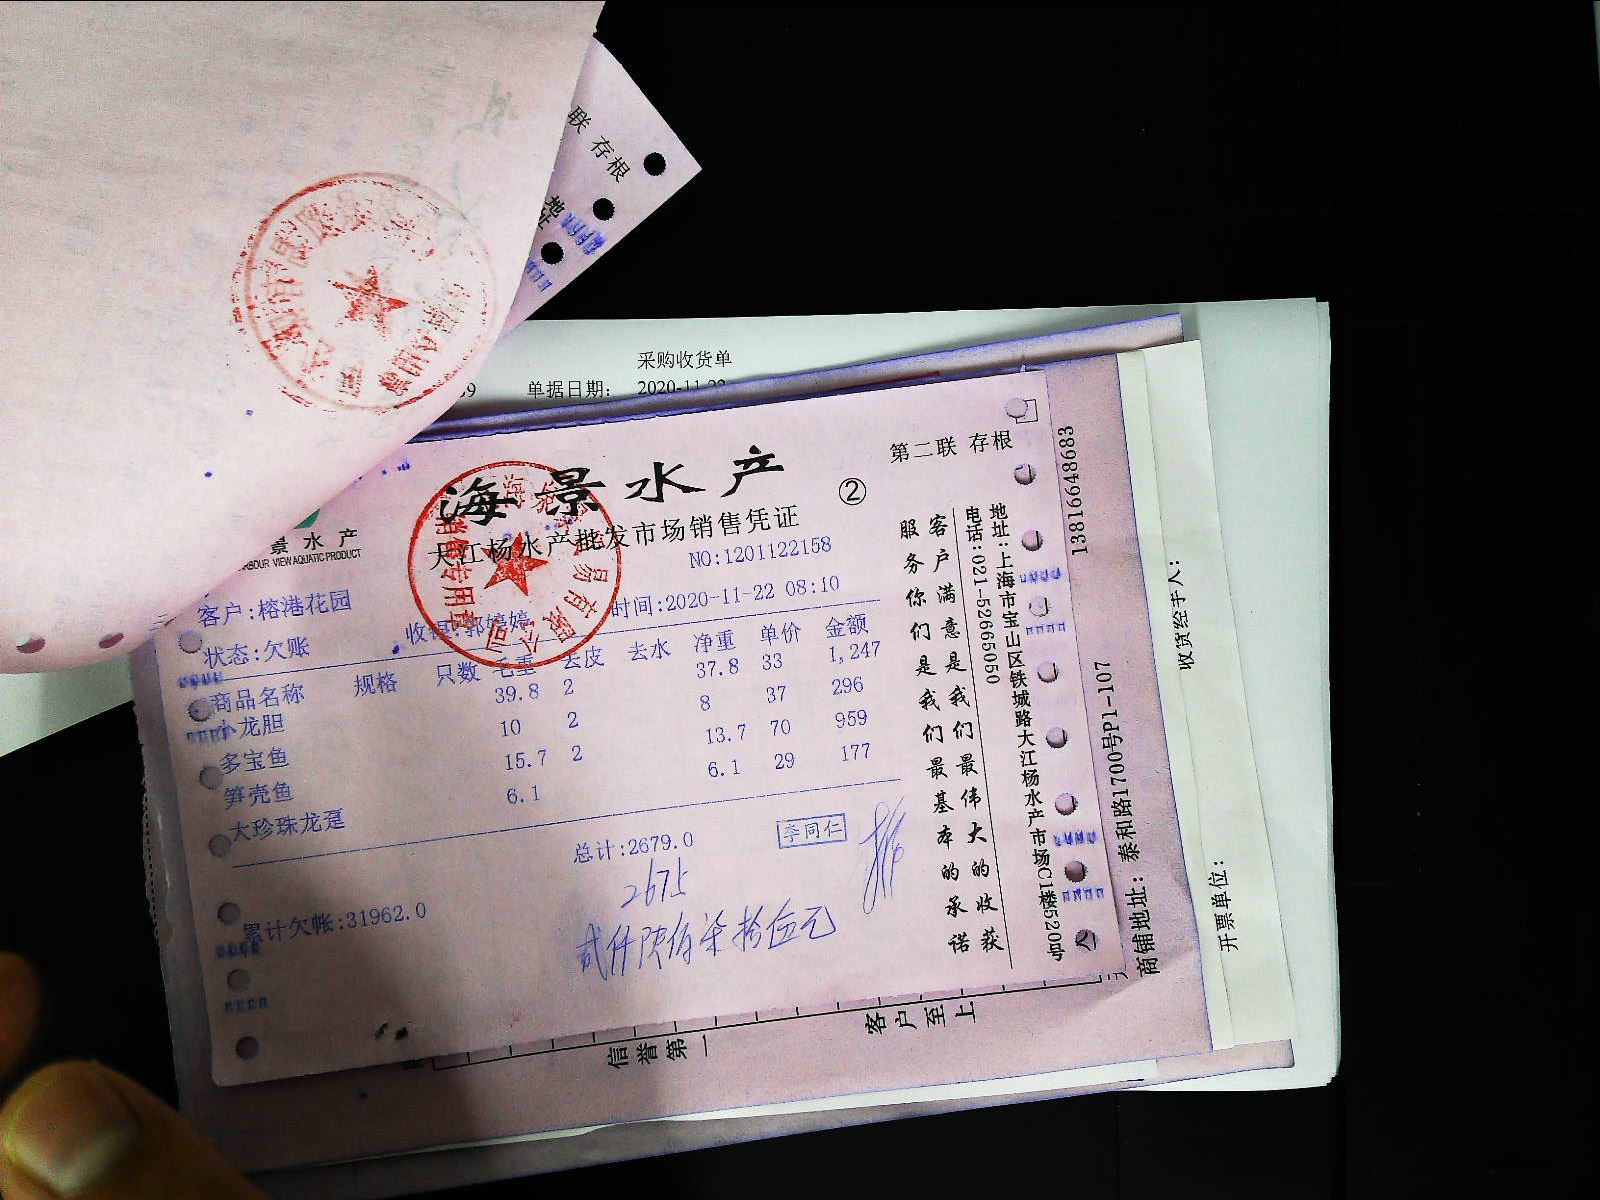 联 存根
地址
采购收货单
39 单据日期： 2020-11-22
海景水产
②
第二联 存根
大江杨水产批发市场销售凭证
景水产
RBOUR VIEW AQUATIC PRODUCT
NO:1201122158
客户:榕港花园
时间:2020-11-22 08:10
状态:欠账
收银:郭婷婷
商品名称 规格 只数 毛重 去皮 去水 净重 单价 金额
小龙胆 39.8 2 37.8 33 1,247
多宝鱼 10 2 8 37 296
笋壳鱼 15.7 2 13.7 70 959
大珍珠龙趸 6.1 6.1 29 177
总计:2679.0
李同仁
2675
贰仟陆佰柒拾伍元
累计欠帐:31962.0
客户满意是我们最伟大的收获
服务你们是我们最基本的承诺
地址:上海市宝山区铁城路大江杨水产市场C1楼520号
电话:021-52665050
13816648683
商铺地址: 泰和路1700号P1-107
收货经手人:
开票单位:
信誉第一
客户至上
销售专用章